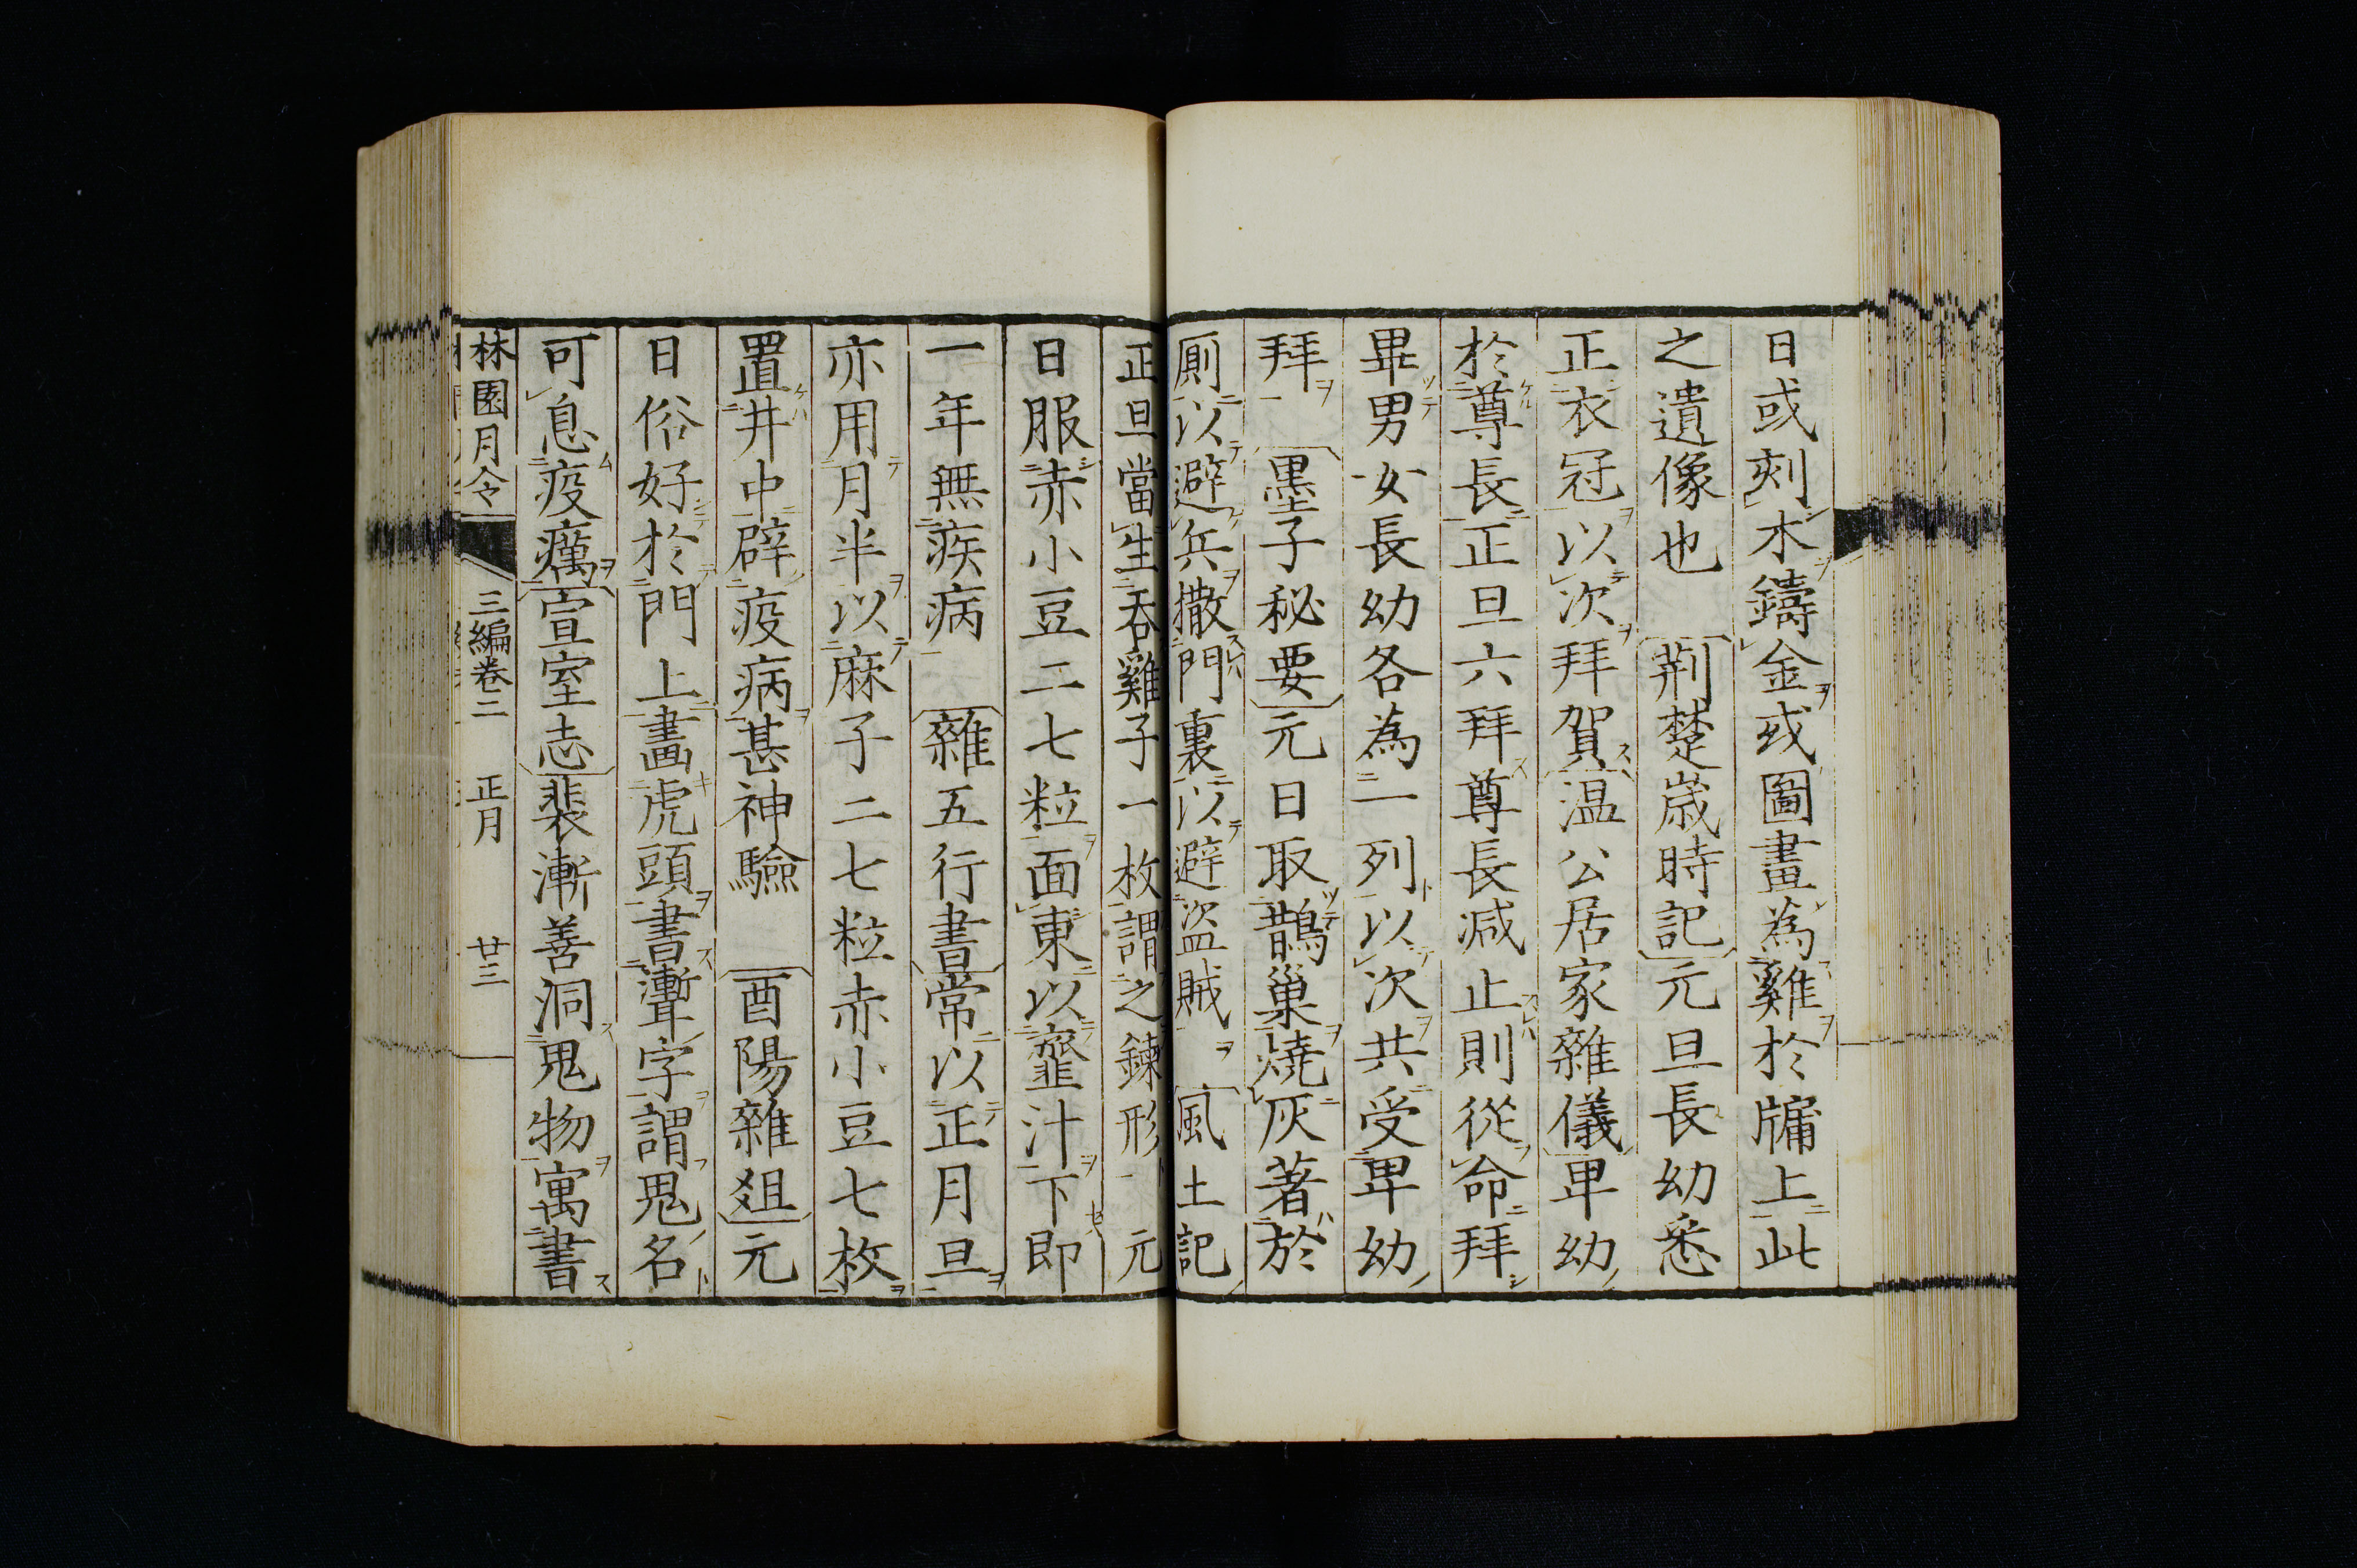 日或刻木鑄金或圖畫為雞於牗上此
之遺像也　荆楚歳時記元旦長幼悉
正衣冠以次拜賀温公居家雜儀卑幼
於尊長正旦六拜尊長减止則從命拜
畢男女長幼各為一列以次共受卑幼
拜　墨子秘要元日取鵲巢燒灰著於
厠以避兵撒門裏以避盗賊　風土記
正旦當生吞雞子一枚謂之鍊形　元
日服赤小豆二七粒面東以虀汁下即
一年無疾病　雜五行書常以正月旦
亦用月半以麻子二七粒赤小豆七枚
置井中辟疫病甚神驗　酉陽雜爼元
日俗好於門上畫虎頭書聻字謂鬼名
可息疫癘宣室志裴漸善洞鬼物寓書
林園月令　三編卷二　正月　廿三